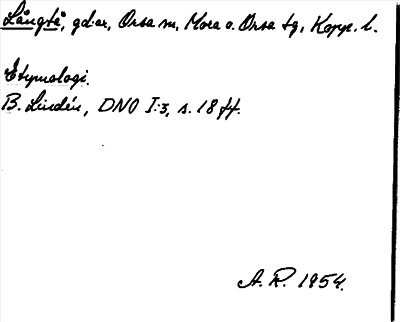 Långtå, gd:ar, Orsa sn, Mora o. Orsa tg, Kopp. l.
Etymologi.
B. Lindén, DNO I:3, s. 18 ff.
A. R. 1954.